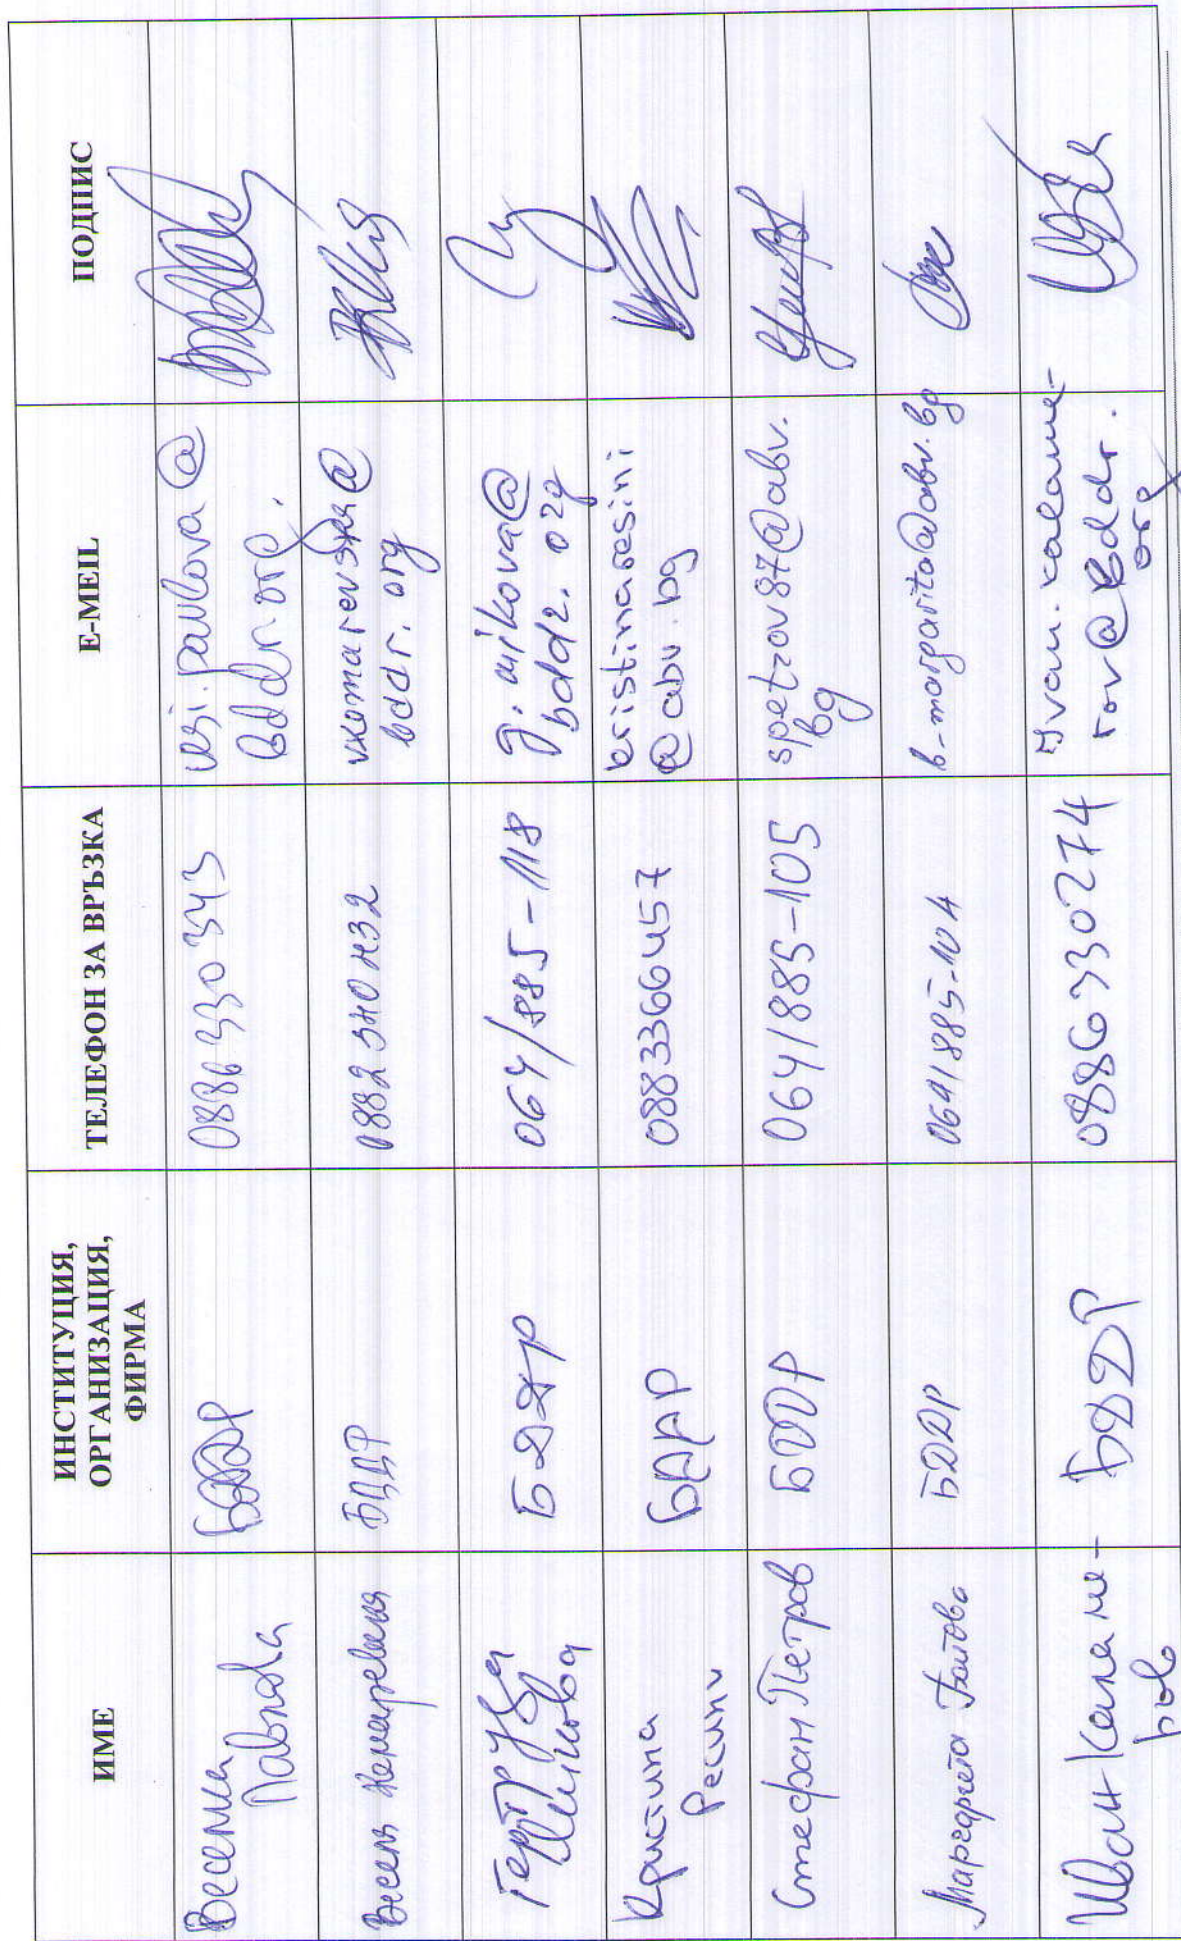 ИМЕ
ИНСТИТУЦИЯ,
ОРГАНИЗАЦИЯ,
ФИРМА
ТЕЛЕФОН ЗА ВРЪЗКА
E-MEIL
ПОДПИС
Весела
Павлова
БДДР
0886330343
vesi.pavlova@
bddr.org.
Весела
БДДР
bddr.org
Гертруда
Микова
БДДР
064/885-118
g.mikova@
bddr.org
Кристина
Ресини
БДДР
0883366457
kristinaresini
@abv.bg
Стефан Петров
БДДР
064/885-105
spetrov87@abv.
bg
Маргарита
БДДР
064/885-104
b-margarita@abv.bg
Иван Каламе-
ров
БДДР
0886330274
Ivan.kalame-
rov@bddr.
org